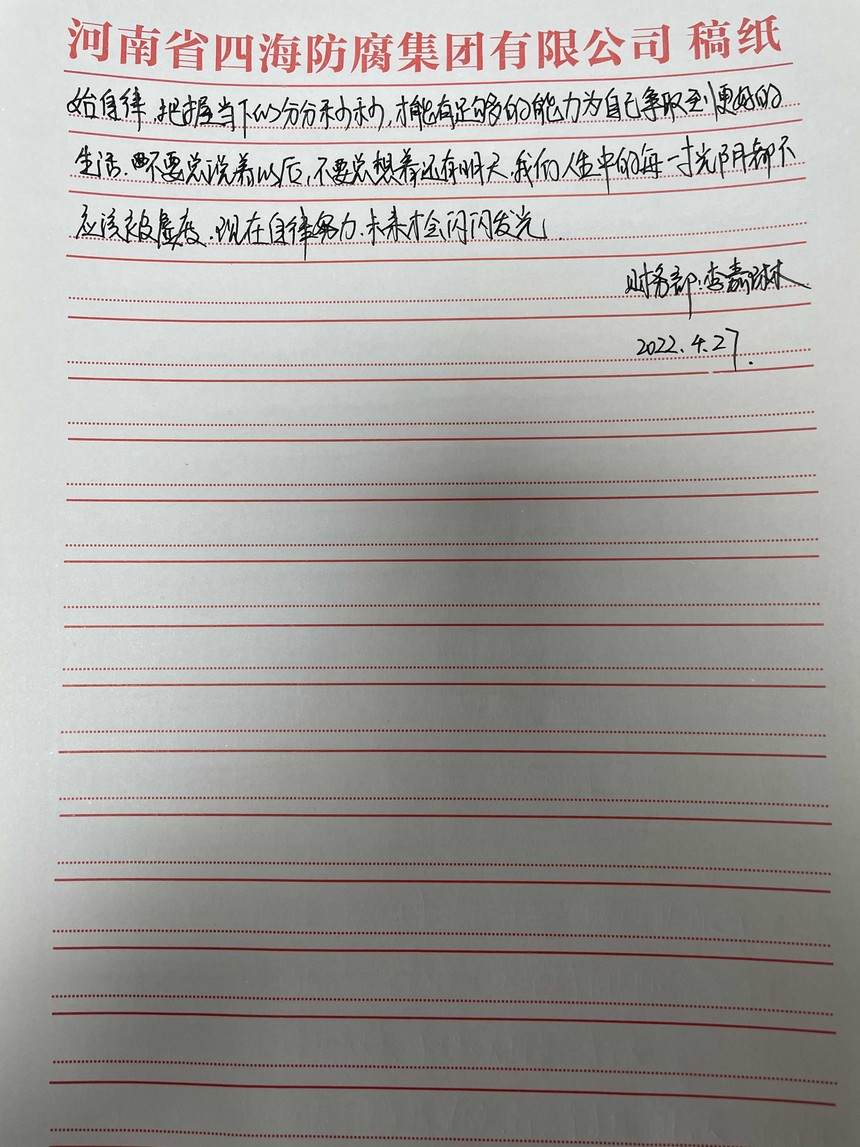 河南省四海防腐集团有限公司 稿纸
始自律,把握当下的分分秒秒,才能有足够的能力为自己争取到更好的
生活.不要总说着以后,不要总想着还有明天,我们人生中的每一寸光阴都不
应该被虚度.现在自律努力.未来才会闪闪发光.
财务部:李嘉琳
2022.4.27.